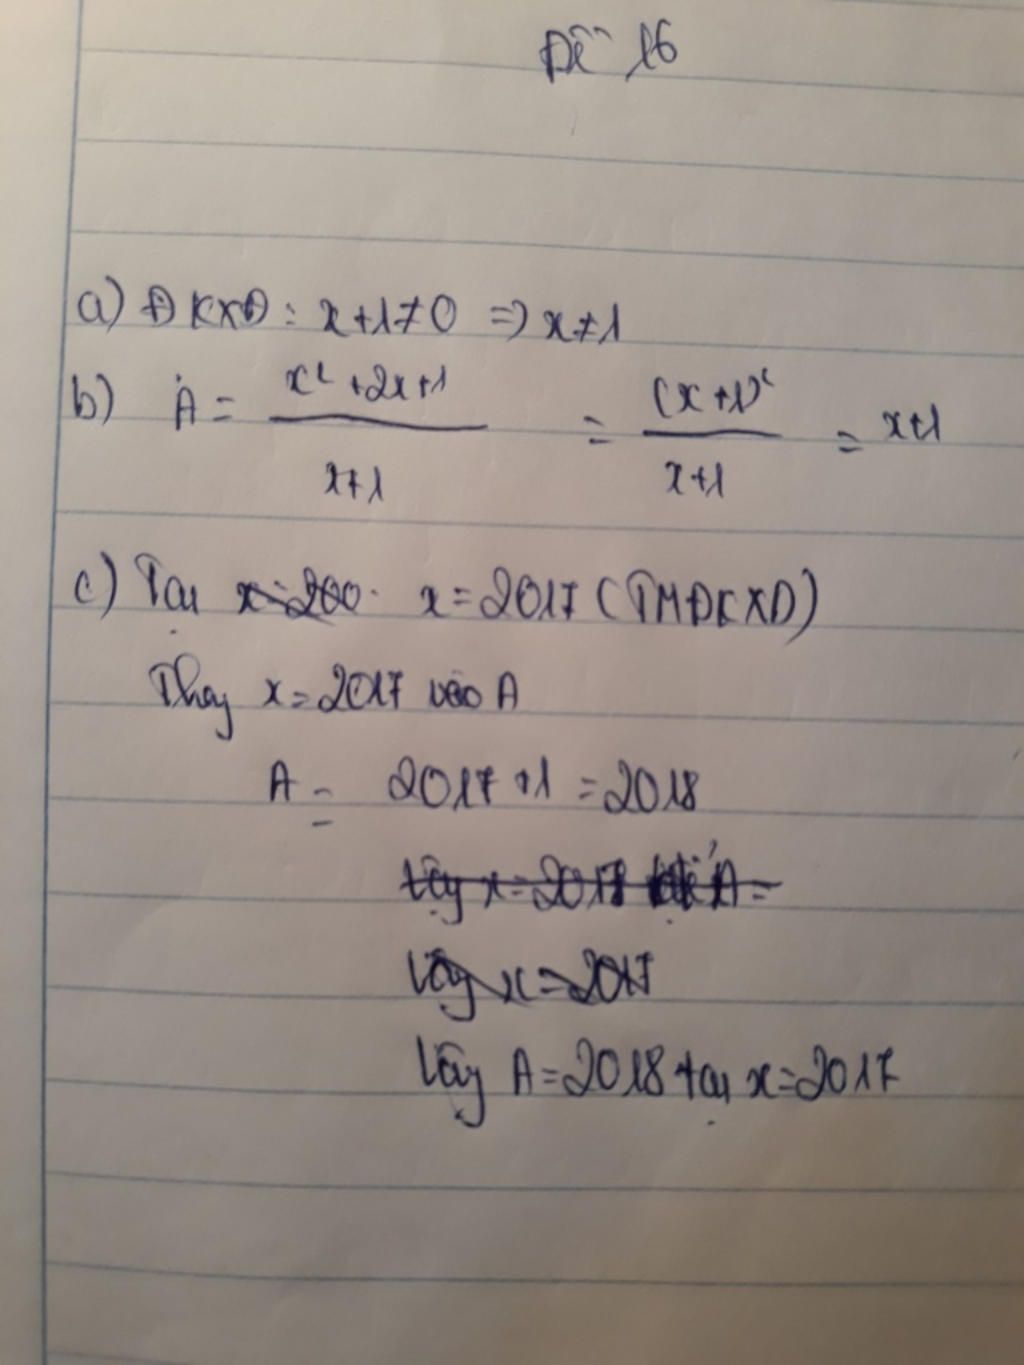 Đề 16
a) ĐKXĐ : x+1≠0 => x≠1
b) A = x²+2x+1 / x+1 = (x+1)² / x+1 = x+1
c) Tại x=200. x=2017 (TMĐKXD)
Thay x=2017 vào A
A = 2017+1 = 2018
Vậy x=2017 A=
Vậy x=2017
Vậy A=2018 tại x=2017